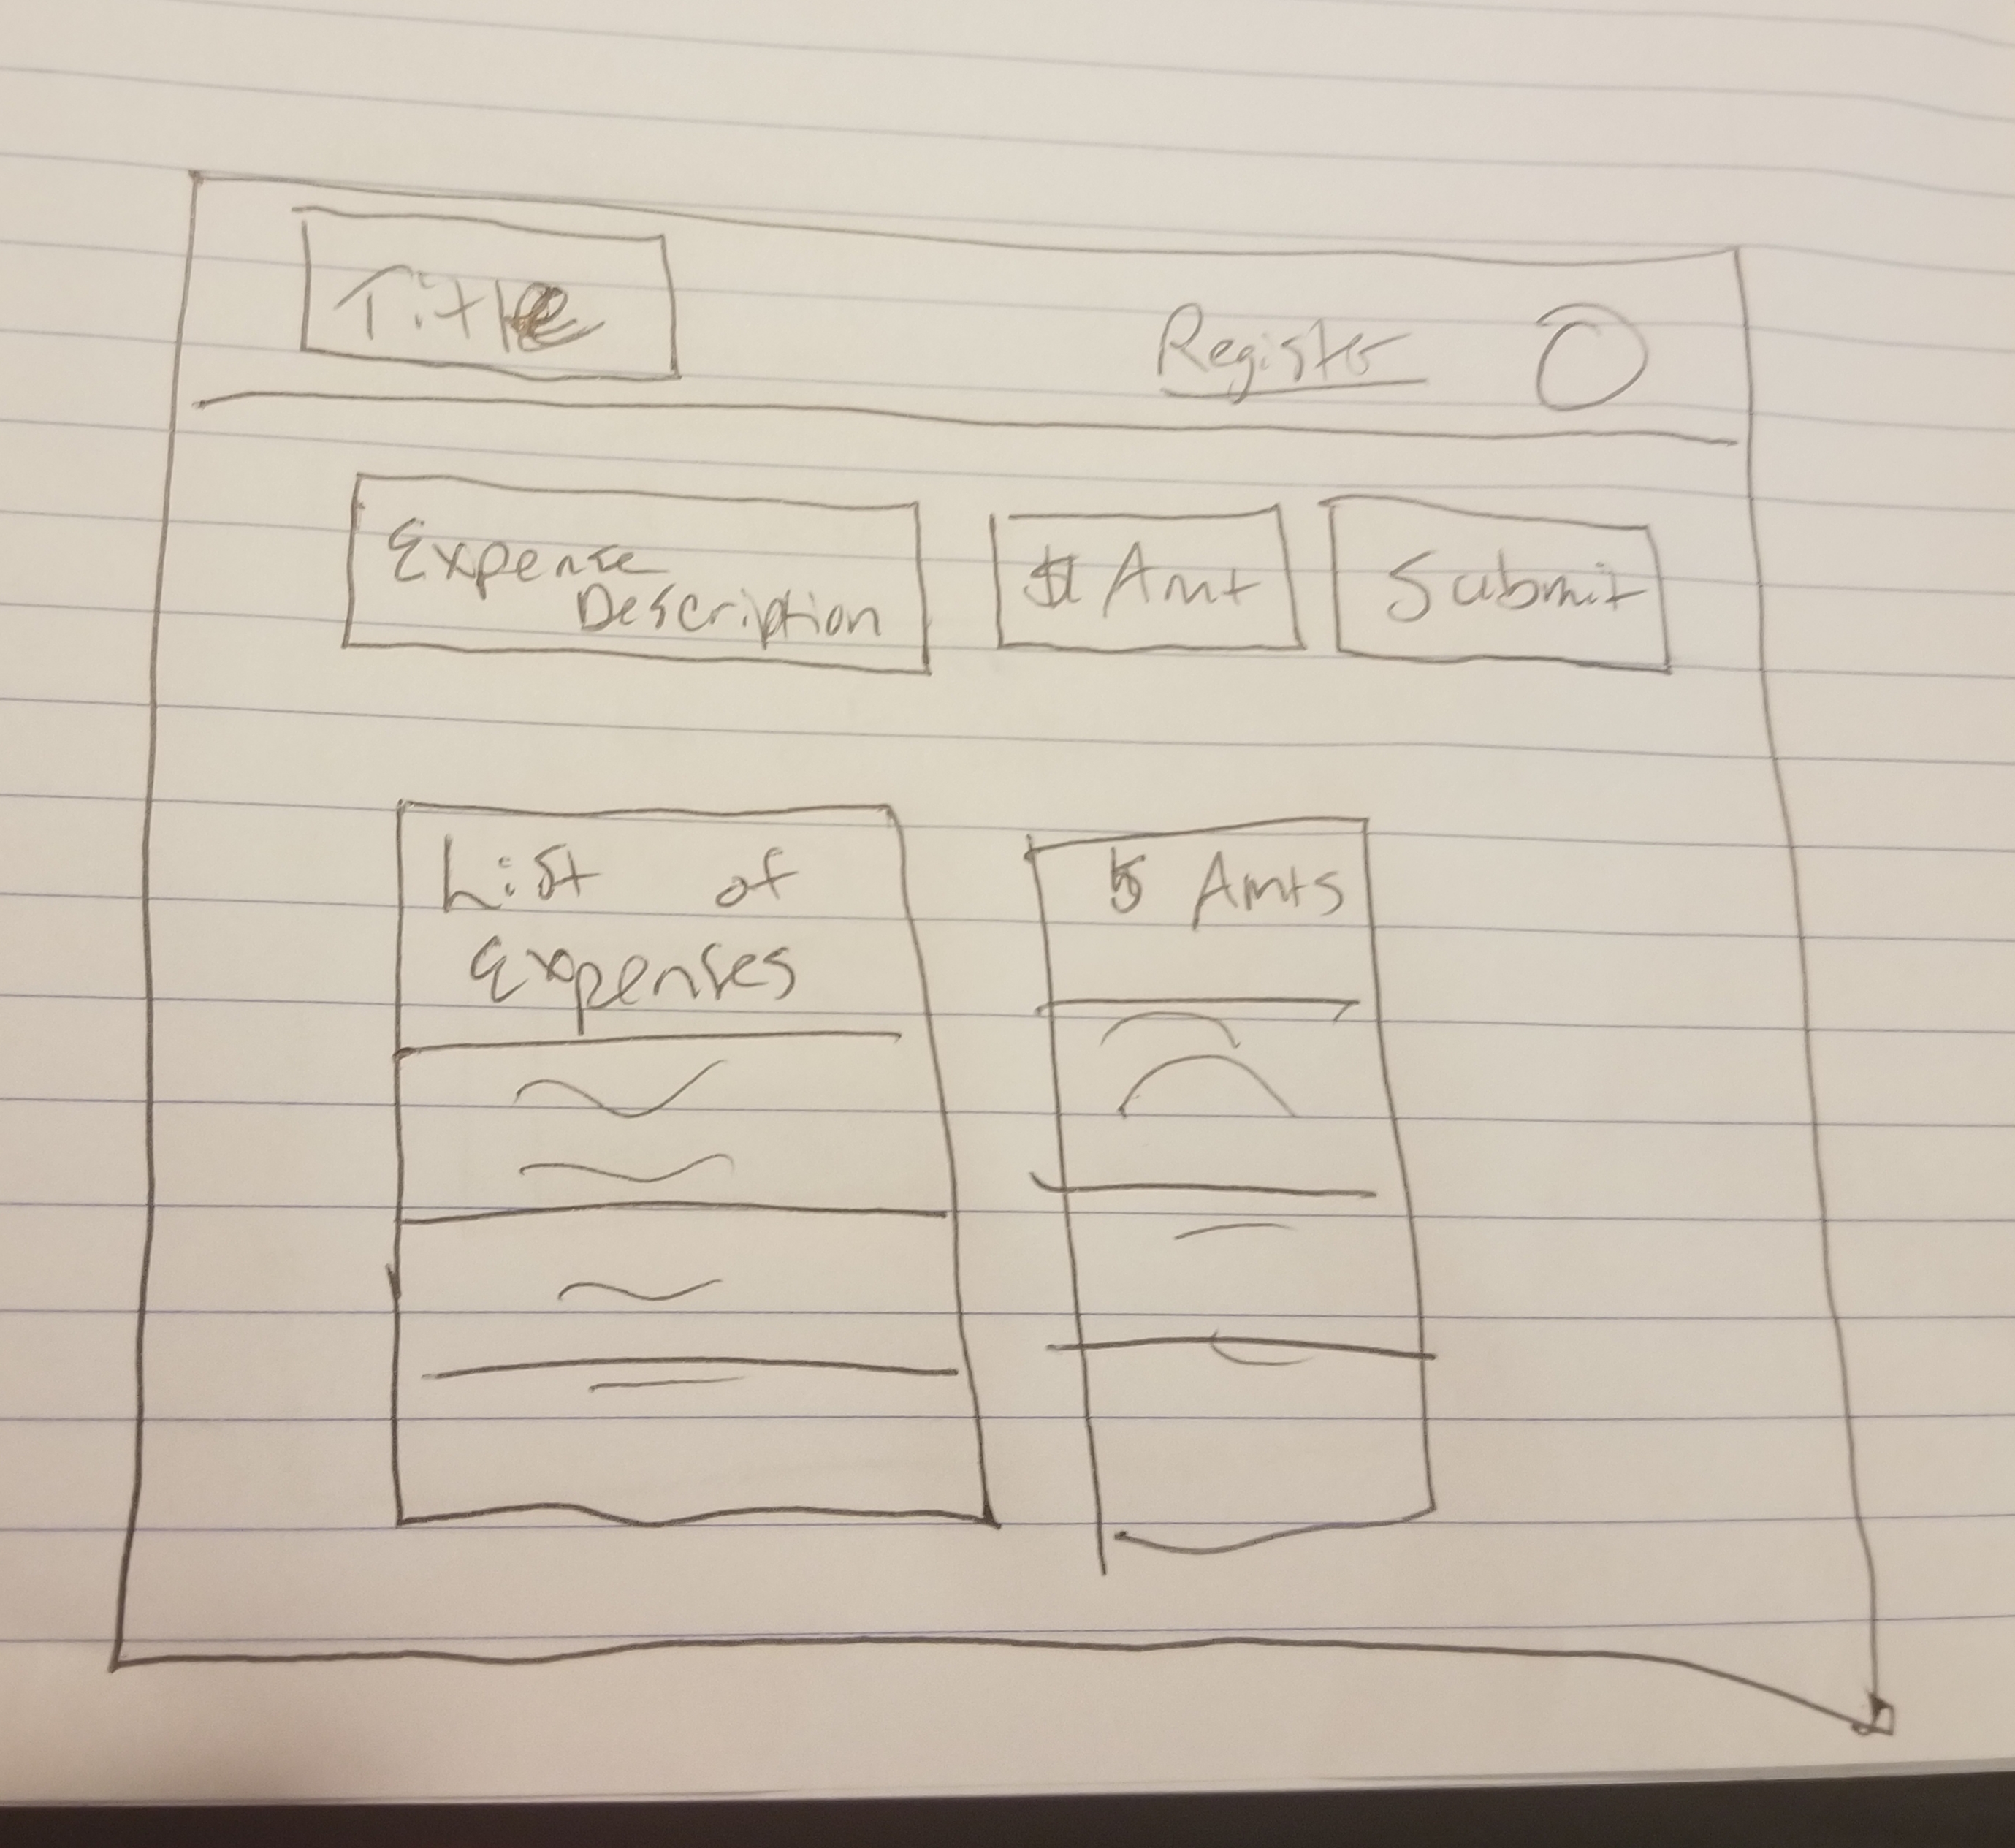 Title
Register
Expense
Description
$ Amt
Submit
List of
Expenses
$ Amts